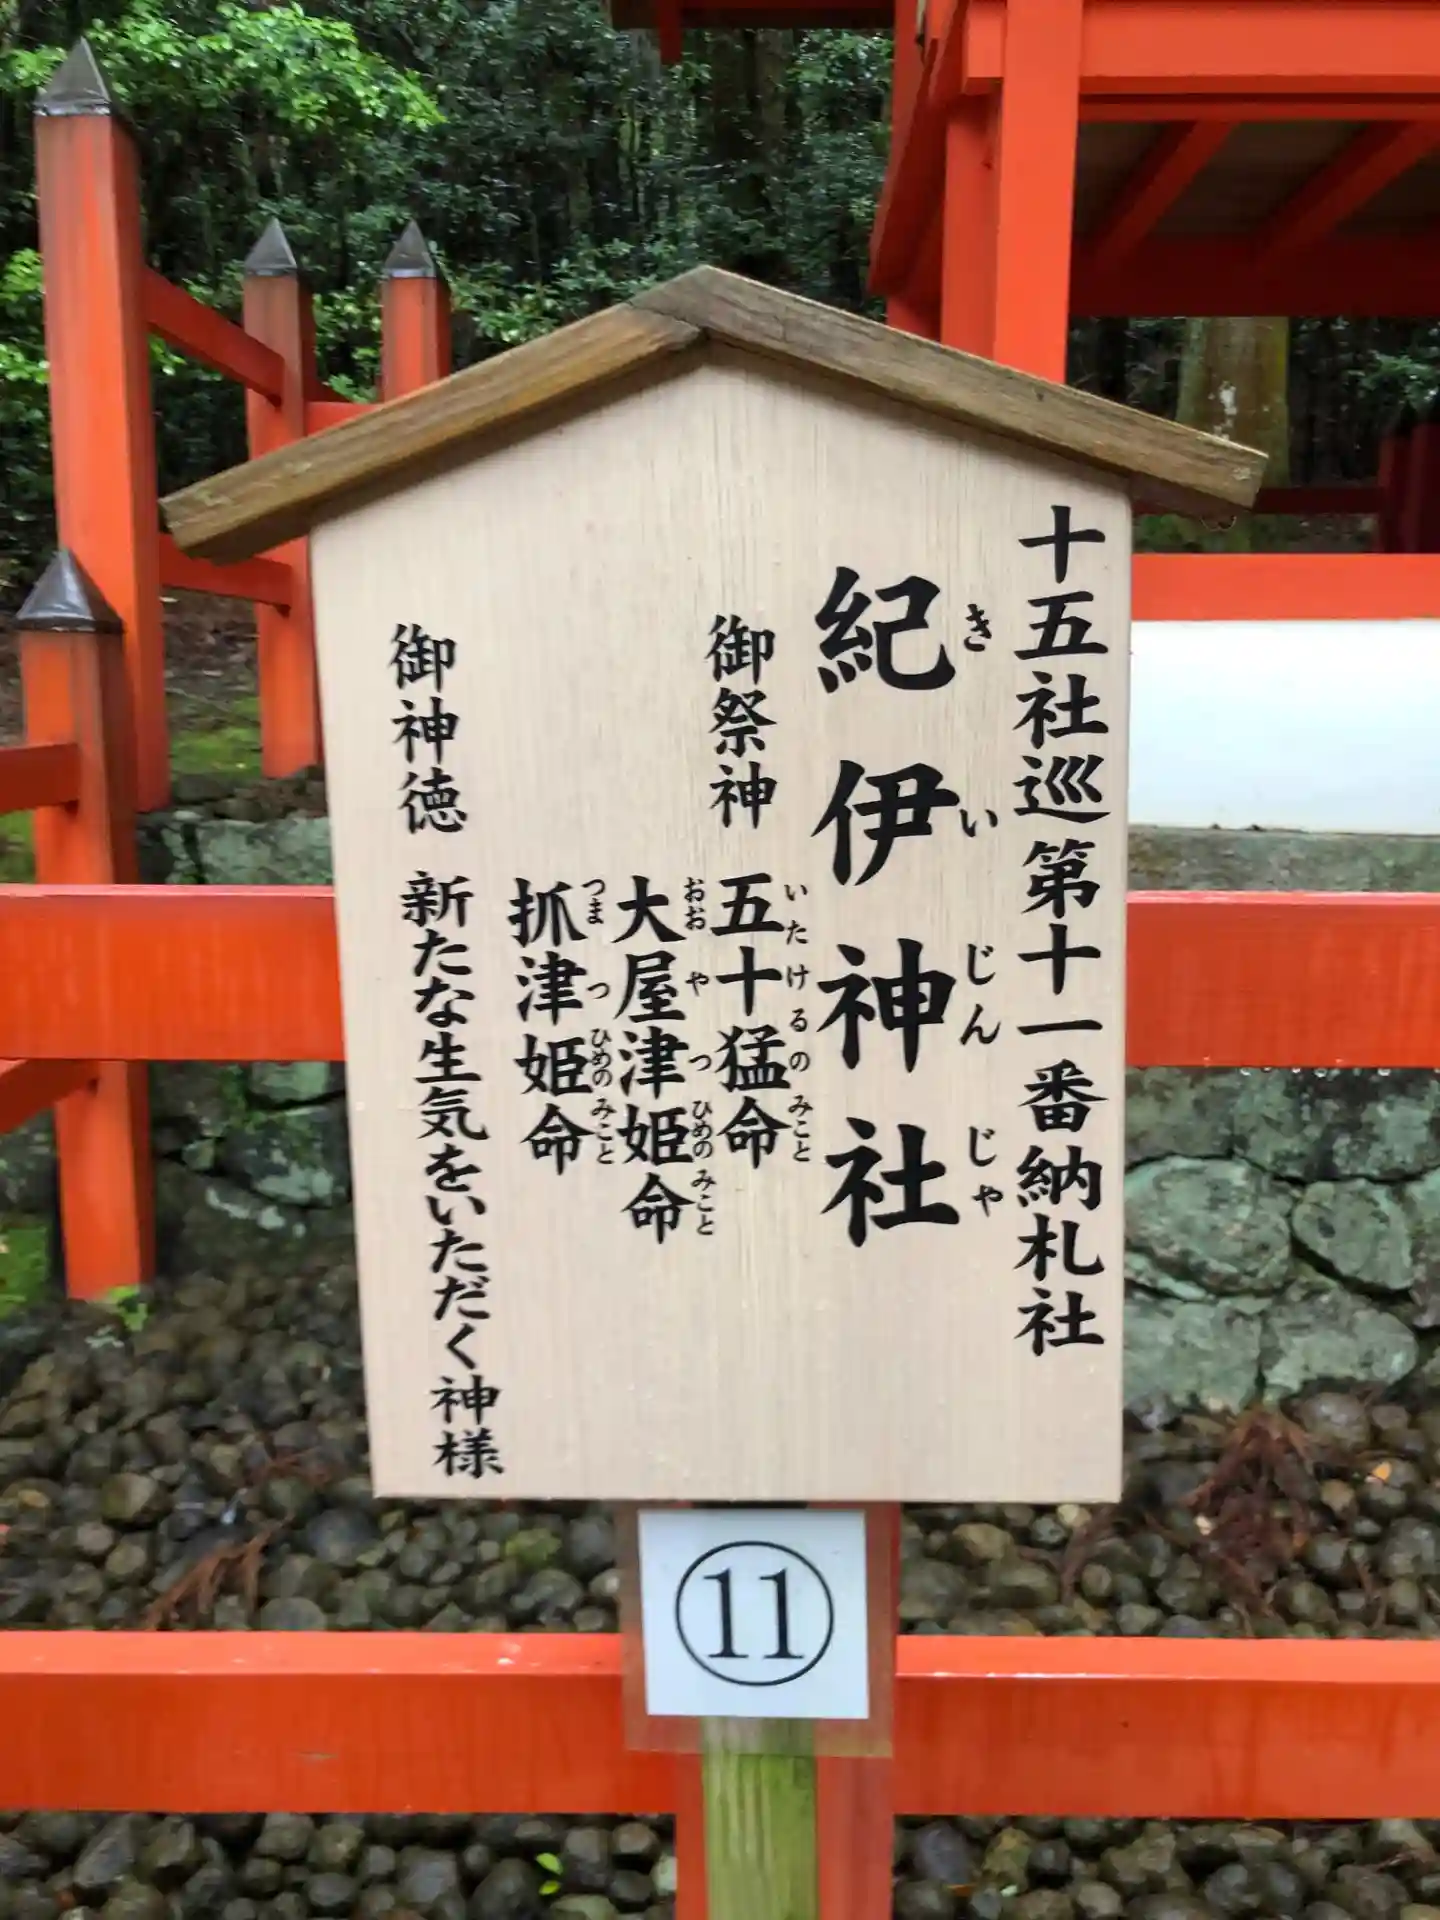 十五社巡第十一番納札社
紀伊神社
きいじんじゃ
御祭神 五十猛命
いたけるのみこと
大屋津姫命
おおやつひめのみこと
抓津姫命
つまつひめのみこと
御神徳 新たな生気をいただく神様
⑪